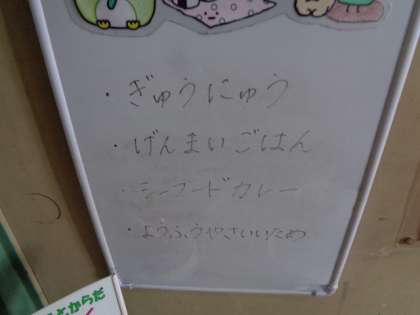 ・ぎゅうにゅう
・げんまいごはん
・シーフードカレー
・ようふうやさいいため
とからだ